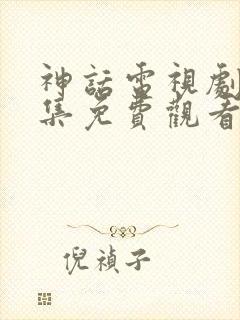 神話電視劇
集免費觀看
倪禎子